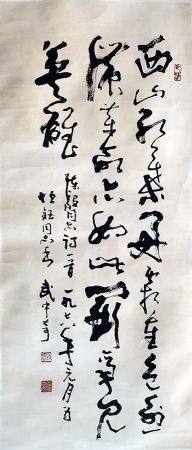 西山红叶好霜重色愈
浓革命亦如此斗争见
英雄
陈毅同志诗一首一九七八年元月
同志 武中奇